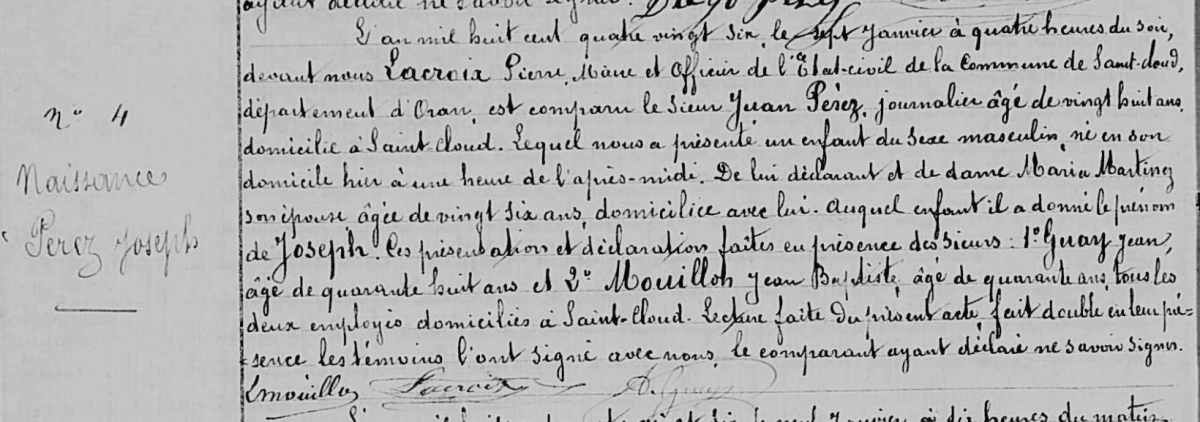 ayant déclaré ne savoir signer. Diego Perez
L'an mil huit cent quatre vingt six, le sept Janvier à quatre heures du soir,
devant nous Lacroix Pierre, Maire et Officier de l'Etat-civil de la Commune de Saint-Cloud,
département d'Oran, est comparu le Sieur Juan Pérez, journalier âgé de vingt huit ans,
domicilié à Saint-Cloud. Lequel nous a présenté un enfant du sexe masculin, né en son
domicile hier à une heure de l'après-midi. De lui déclarant et de dame Maria Martinez
son épouse âgée de vingt six ans, domiciliée avec lui. Auquel enfant il a donné le prénom
de Joseph. Ces présentation et déclaration faites en présence des Sieurs : 1° Guay Jean,
âgé de quarante huit ans et 2° Mouillon Jean Baptiste, âgé de quarante ans, tous les
deux employés domiciliés à Saint-Cloud. Lecture faite du présent acte, fait double en leur pré=
=sence les témoins l'ont signé avec nous, le comparant ayant déclaré ne savoir signer.
Lmouillon Lacroix A. Guay
N° 4
Naissance
Perez Joseph
à dix heures du matin,